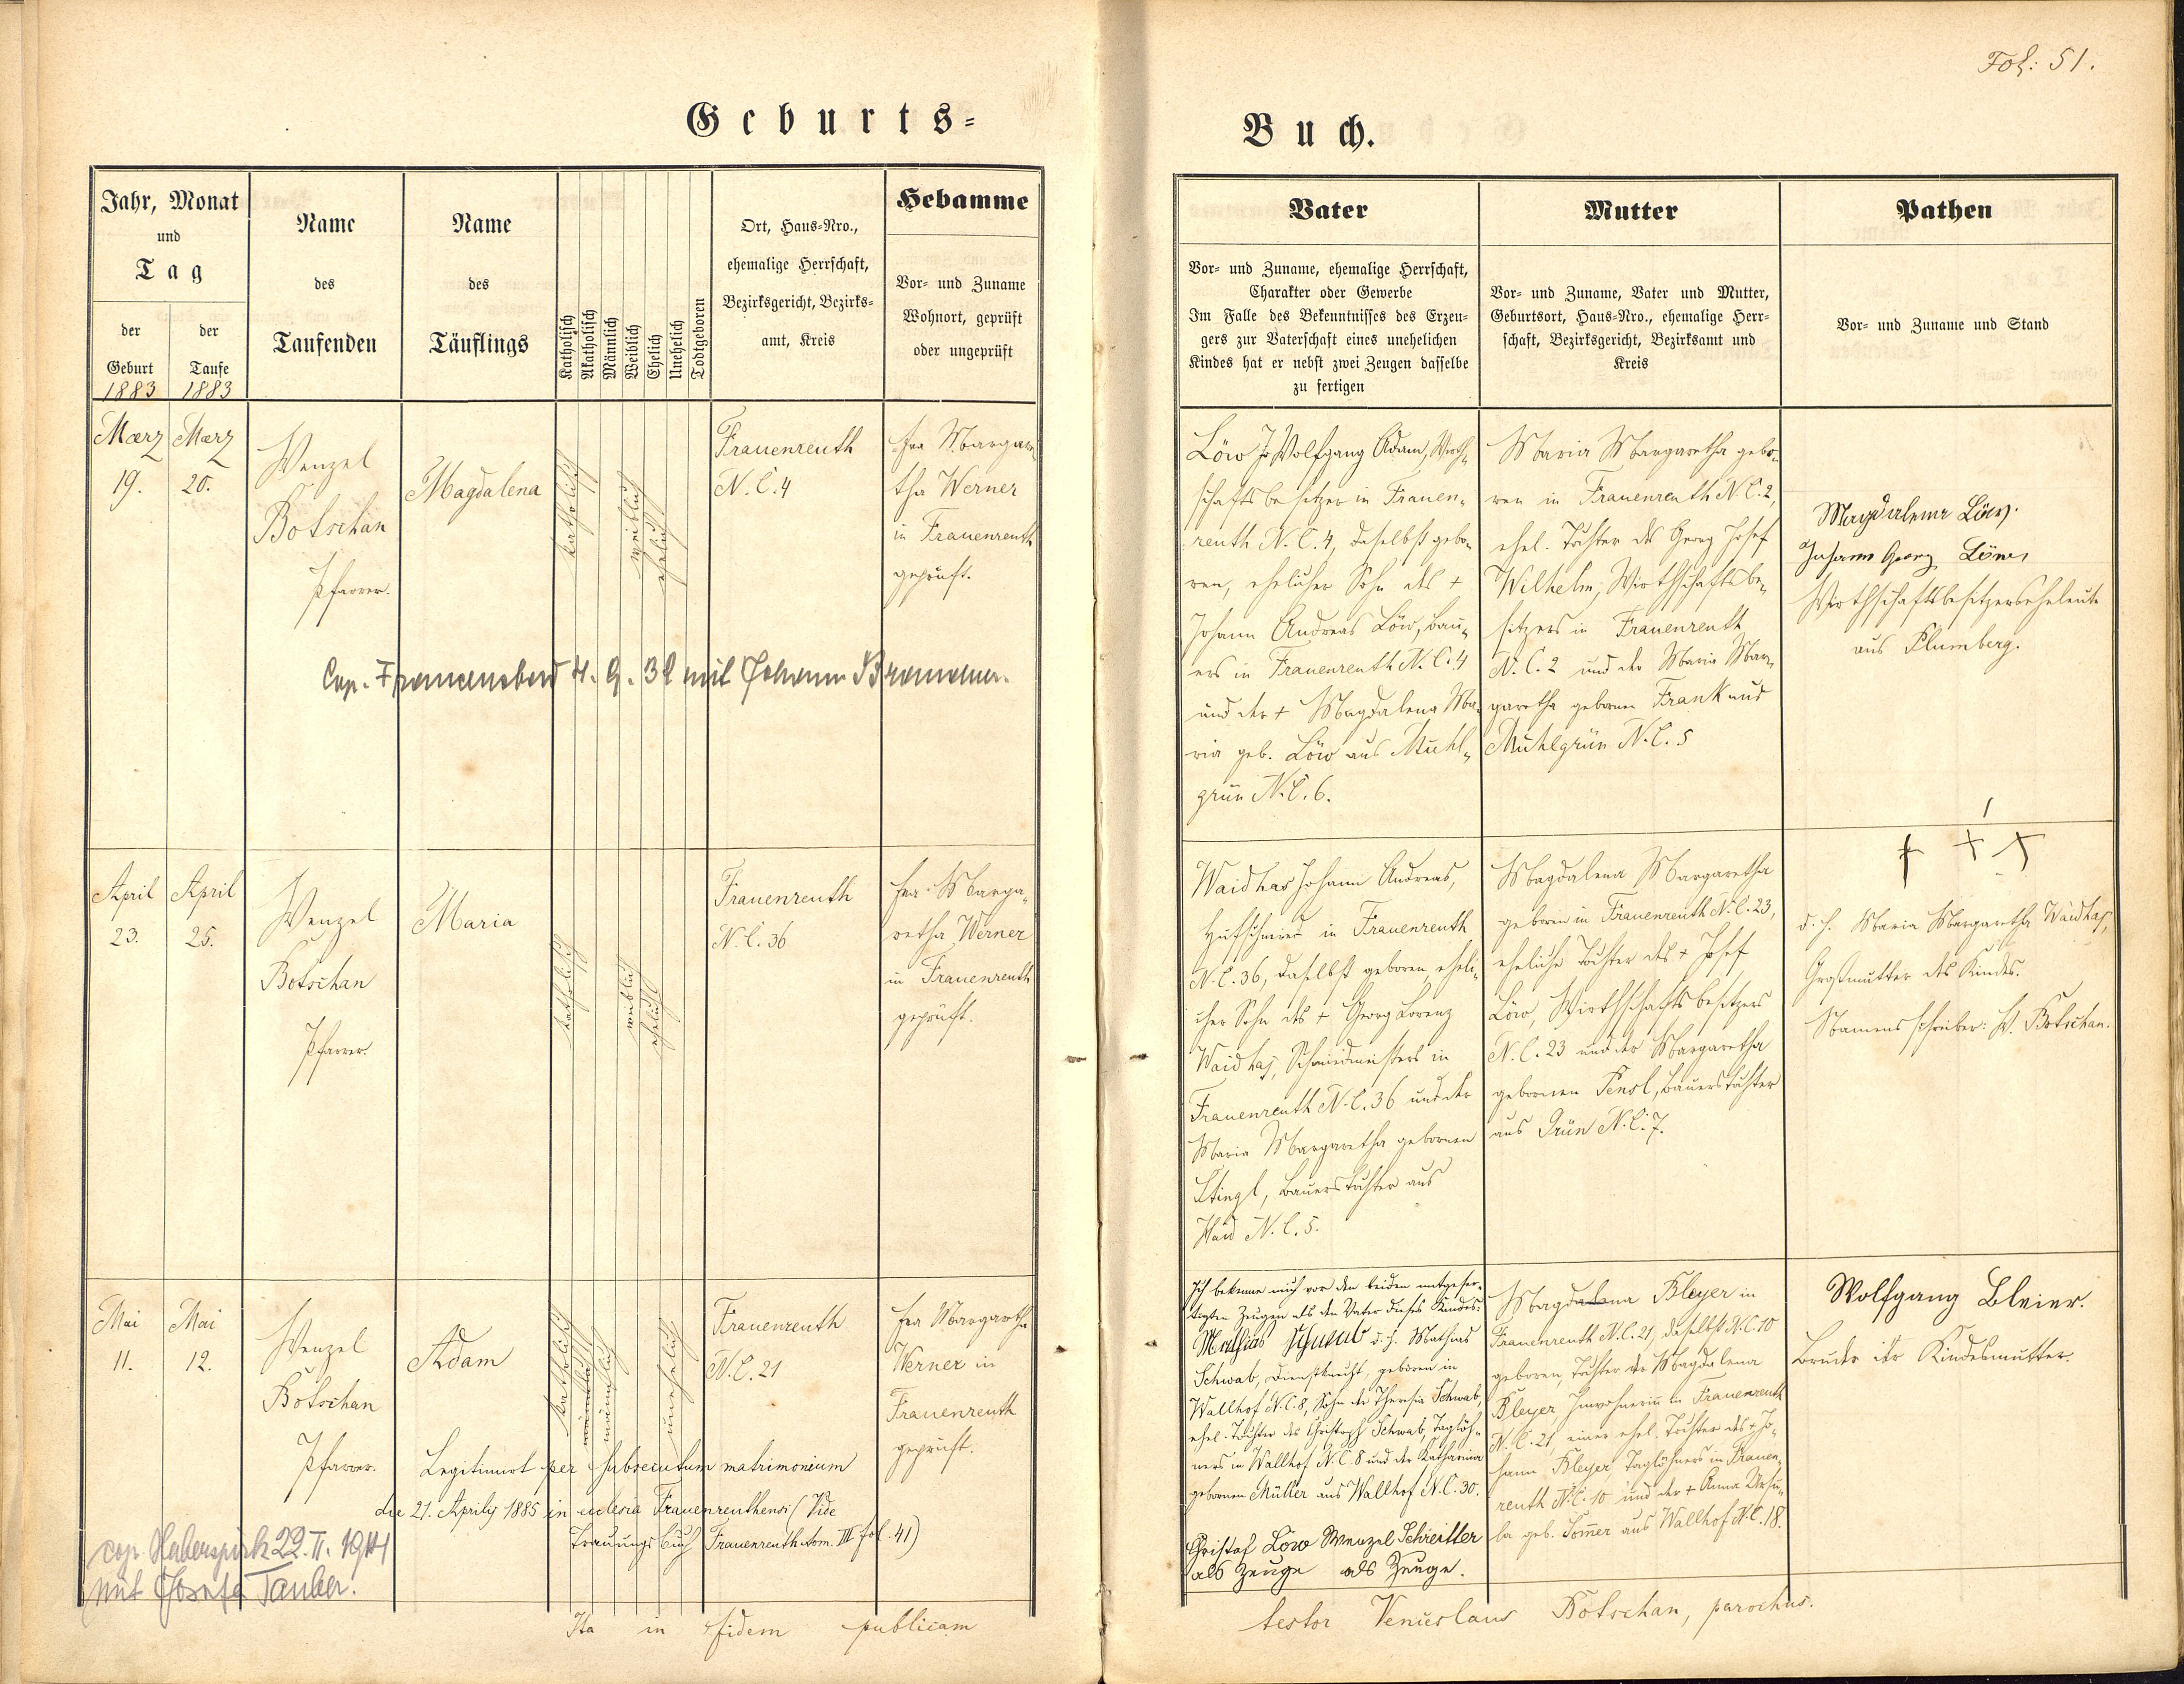 Fol: 51.
Geburts=
Buch.
Jahr, Monat
und
Tag
der
Geburt
1883
der
Taufe
1883
Name
des
Taufenden
Name
des
Täuflings
Katholisch
Akatholisch
Männlich
Weiblich
Ehelich
Unehelich
Todtgeboren
Ort, Haus=Nro.,
ehemalige Herrschaft,
Bezirksgericht, Bezirks=
amt, Kreis
Hebamme
Vor= und Zuname
Wohnort, geprüft
oder ungeprüft
Vater
Vor= und Zuname, ehemalige Herrschaft,
Charakter oder Gewerbe
Im Falle des Bekenntnisses des Erzeu=
gers zur Vaterschaft eines unehelichen
Kindes hat er nebst zwei Zeugen dasselbe
zu fertigen
Mutter
Vor= und Zuname, Vater und Mutter,
Geburtsort, Haus=Nro., ehemalige Herr=
schaft, Bezirksgericht, Bezirksamt und
Kreis
Pathen
Vor= und Zuname und Stand
Maerz
19.
Maerz
20.
Wenzel
Botschan
Pfarrer.
Magdalena
katholisch
weiblich
ehelich
Frauenreuth
N.C. 4
Fra Margare
tha Werner
in Frauenreuth
geprüft.
Cop. Franzensbad 4. 9. 32 mit Johann
Löw Wolfgang Adam, Wirth=
schaftsbesitzer in Frauen=
reuth N.C. 4, daselbst gebo=
ren, ehelicher Sohn des +
Johann Andreas Löw, Bau=
ers in Frauenreuth N.C. 4
und der + Magdalena Ma=
ria geb. Löw aus Mühl=
grün N.C. 6.
Maria Margaretha gebo=
ren in Frauenreuth N.C. 2,
ehel. Tochter des Georg Josef
Wilhelm, Wirthschaftsbe=
sitzers in Frauenreuth
N.C. 2 und der Maria Mar=
garetha gebornen Frank aus
Mühlgrün N.C. 5
Magdalena Löw.
Johann Georg Löw
Wirthschaftsbesitzerseheleute
aus Plumberg.
April
23.
April
25.
Wenzel
Botschan
Pfarrer.
Maria
katholisch
weiblich
ehelich
Frauenreuth
N.C. 36
Fra Marga=
retha Werner
in Frauenreuth
geprüft.
Waidhas Johann Andreas,
Hufschmied in Frauenreuth
N.C. 36, daselbst geboren eheli=
cher Sohn des + Georg Lorenz
Waidhas, Schmiedmeisters in
Frauenreuth N.C. 36 und der
Maria Margaretha gebornen
Stingl, Bauerstochter aus
Haid N.C. 5.
Magdalena Margaretha
geboren in Frauenreuth N.C. 23,
eheliche Tochter des + Josef
Löw, Wirthschaftsbesitzers
N.C. 23 und der Margaretha
gebornen Pensl, Bauerstochter
aus Grün N.C. 7.
+ + +
d. h. Maria Margaretha Waidhas,
Großmutter des Kindes.
Namensschreiber: W. Botschan.
Mai
11.
Mai
12.
Wenzel
Botschan
Pfarrer.
Adam
katholisch
männlich
männlich
unehelich
Frauenreuth
N.C. 21
Fra Margaretha
Werner in
Frauenreuth
geprüft.
Legitimirt per subsecutum matrimonium
die 21. Aprilis 1885 in ecclesia Frauenreuthensi (Vide
Trauungsbuch Frauenreuth tom. III fol. 41)
cop. Haberspirk 22. II. 1914
mit Josefa Tauber.
Ich bekenne mich vor den beiden mitgefer=
tigten Zeugen als den Vater dieses Kindes:
Mathias Schwab d. h. Mathias
Schwab, Dienstknecht, geboren in
Wallhof N.C. 8, Sohn der Theresia Schwab,
ehel. Tochter des Christoph Schwab, Taglöh=
ners in Wallhof N.C. 8 und der Katharina
gebornen Müller aus Wallhof N.C. 30.
Christof Löw Wenzel Schreitter
als Zeuge als Zeuge.
Magdalena Bleyer in
Frauenreuth N.C. 21, daselbst N.C. 10
geboren, Tochter der Magdalena
Bleyer Inwohnerin in Frauenreuth
N.C. 21, einer ehel. Tochter des + Jo=
hann Bleyer, Taglöhners in Frauen=
reuth N.C. 10 und der + Anna Ursu=
la geb. Sommer aus Wallhof N.C. 18.
Wolfgang Bleier.
Bruder der Kindesmutter.
Ita in fidem publicam
testor Venceslaus Botschan, parochus.